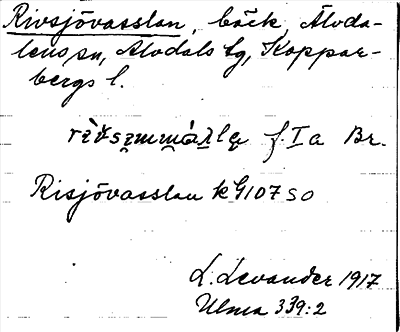 Rivsjövasslan, bäck, Älvda-
lens sn, Älvdals tg, Koppar-
bergs l.
f. I a Br.
Risjövasslan k G107 SO
L. Levander 1917
Ulma 339:2